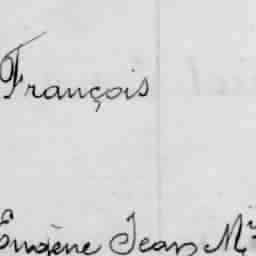 François
Eugène Jean Mie